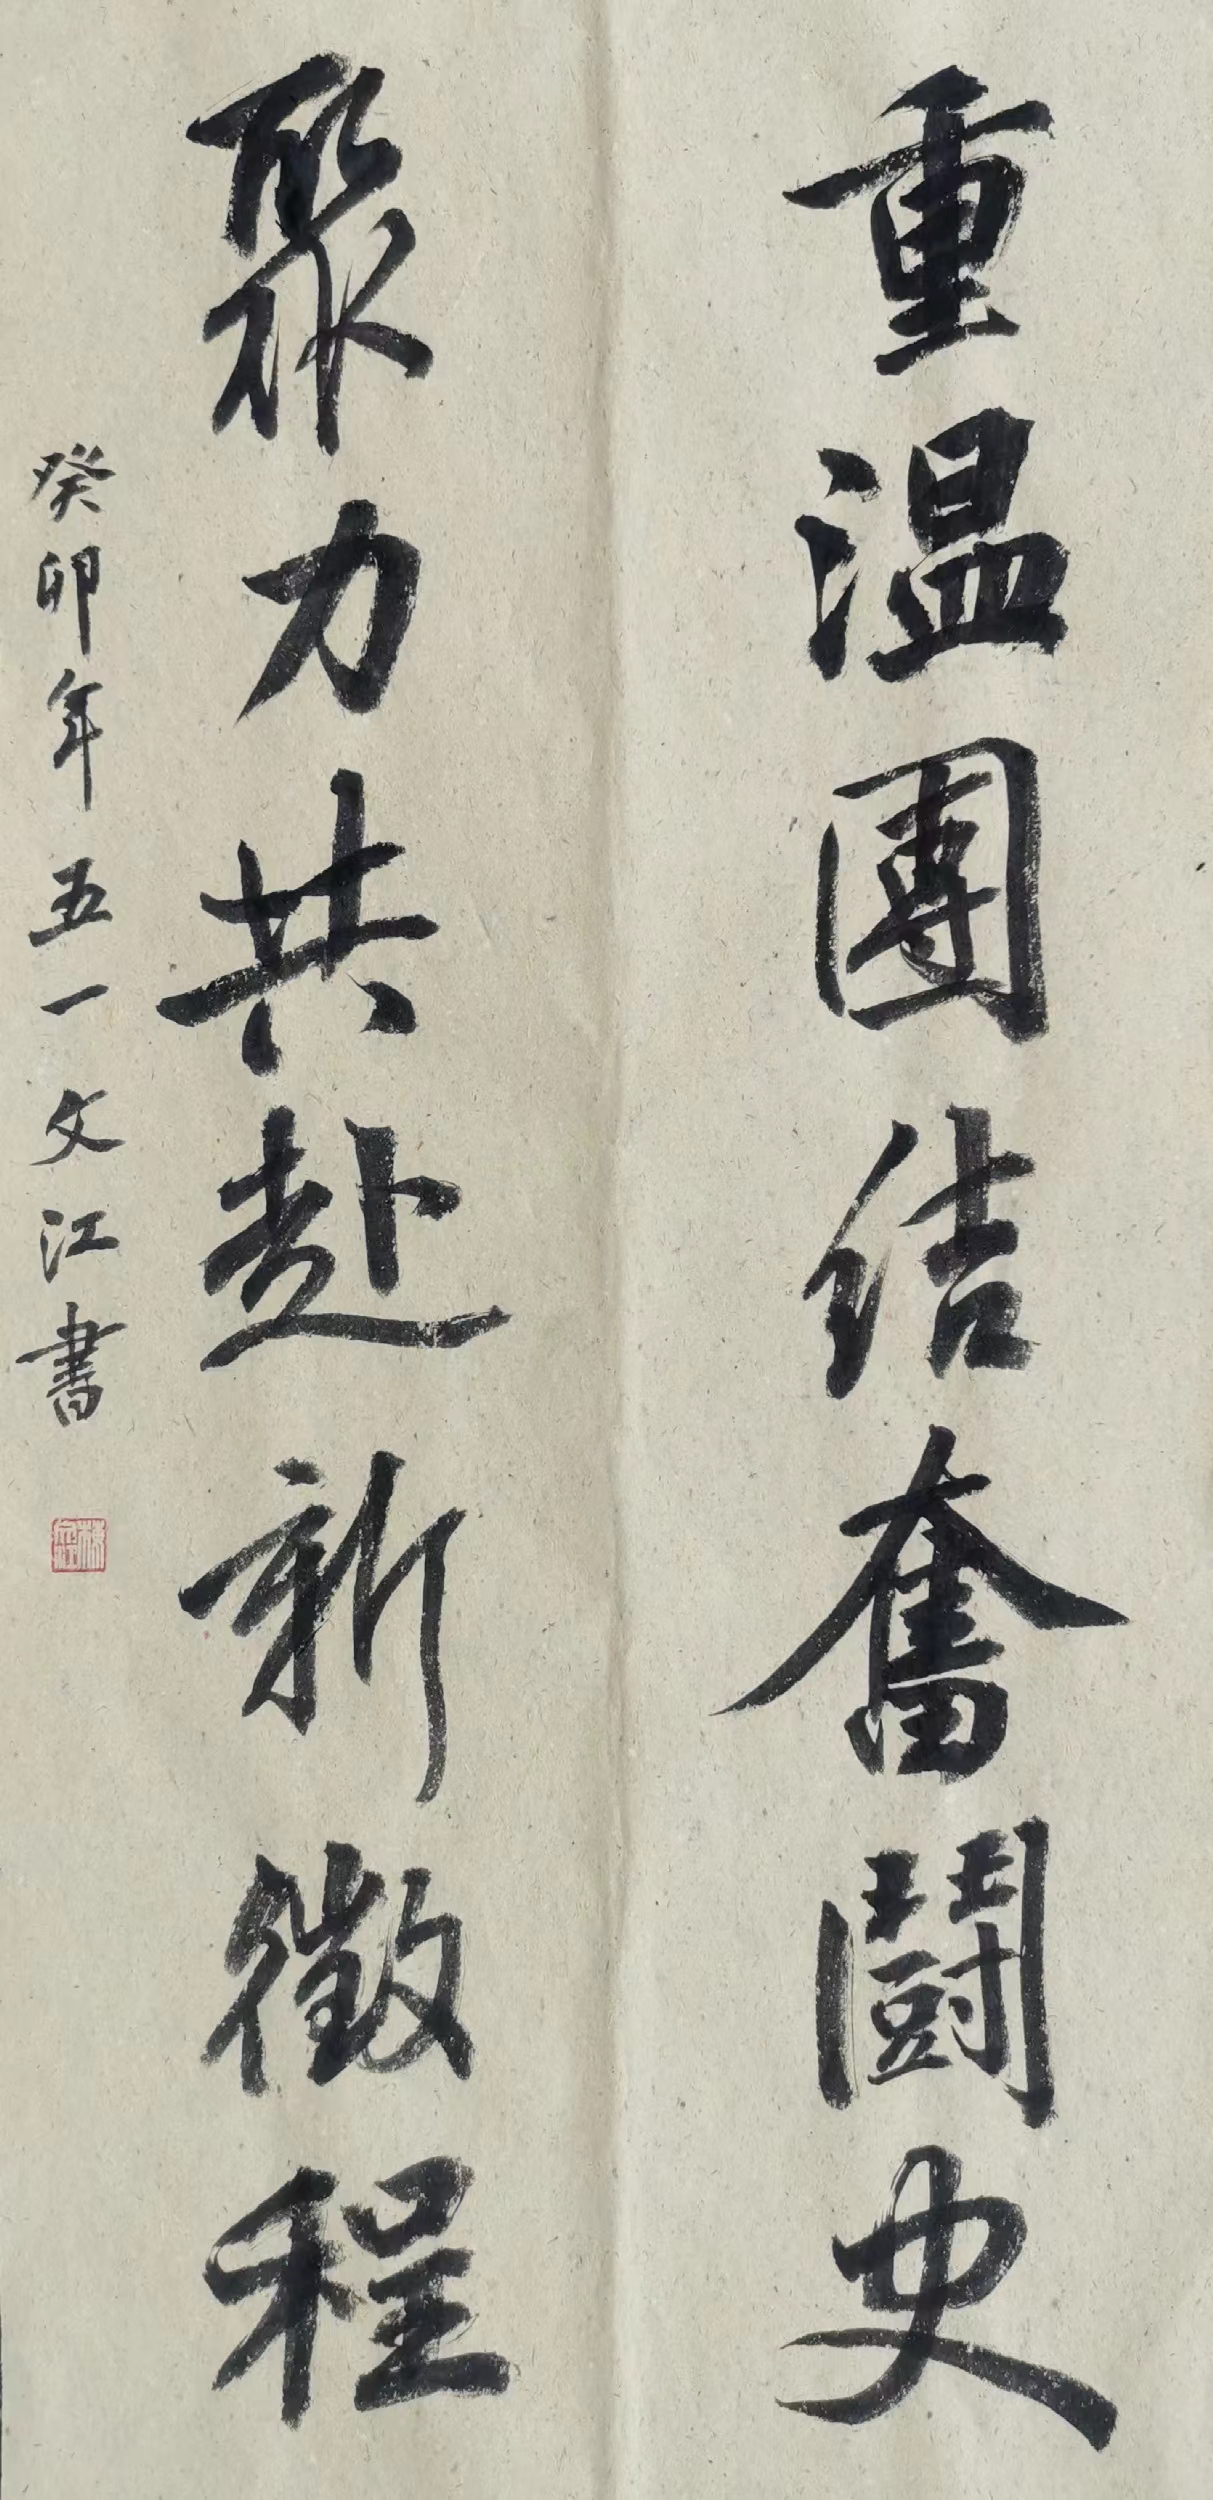 重温團结奮鬪史
聚力共赴新徵程
癸卯年五一文江書